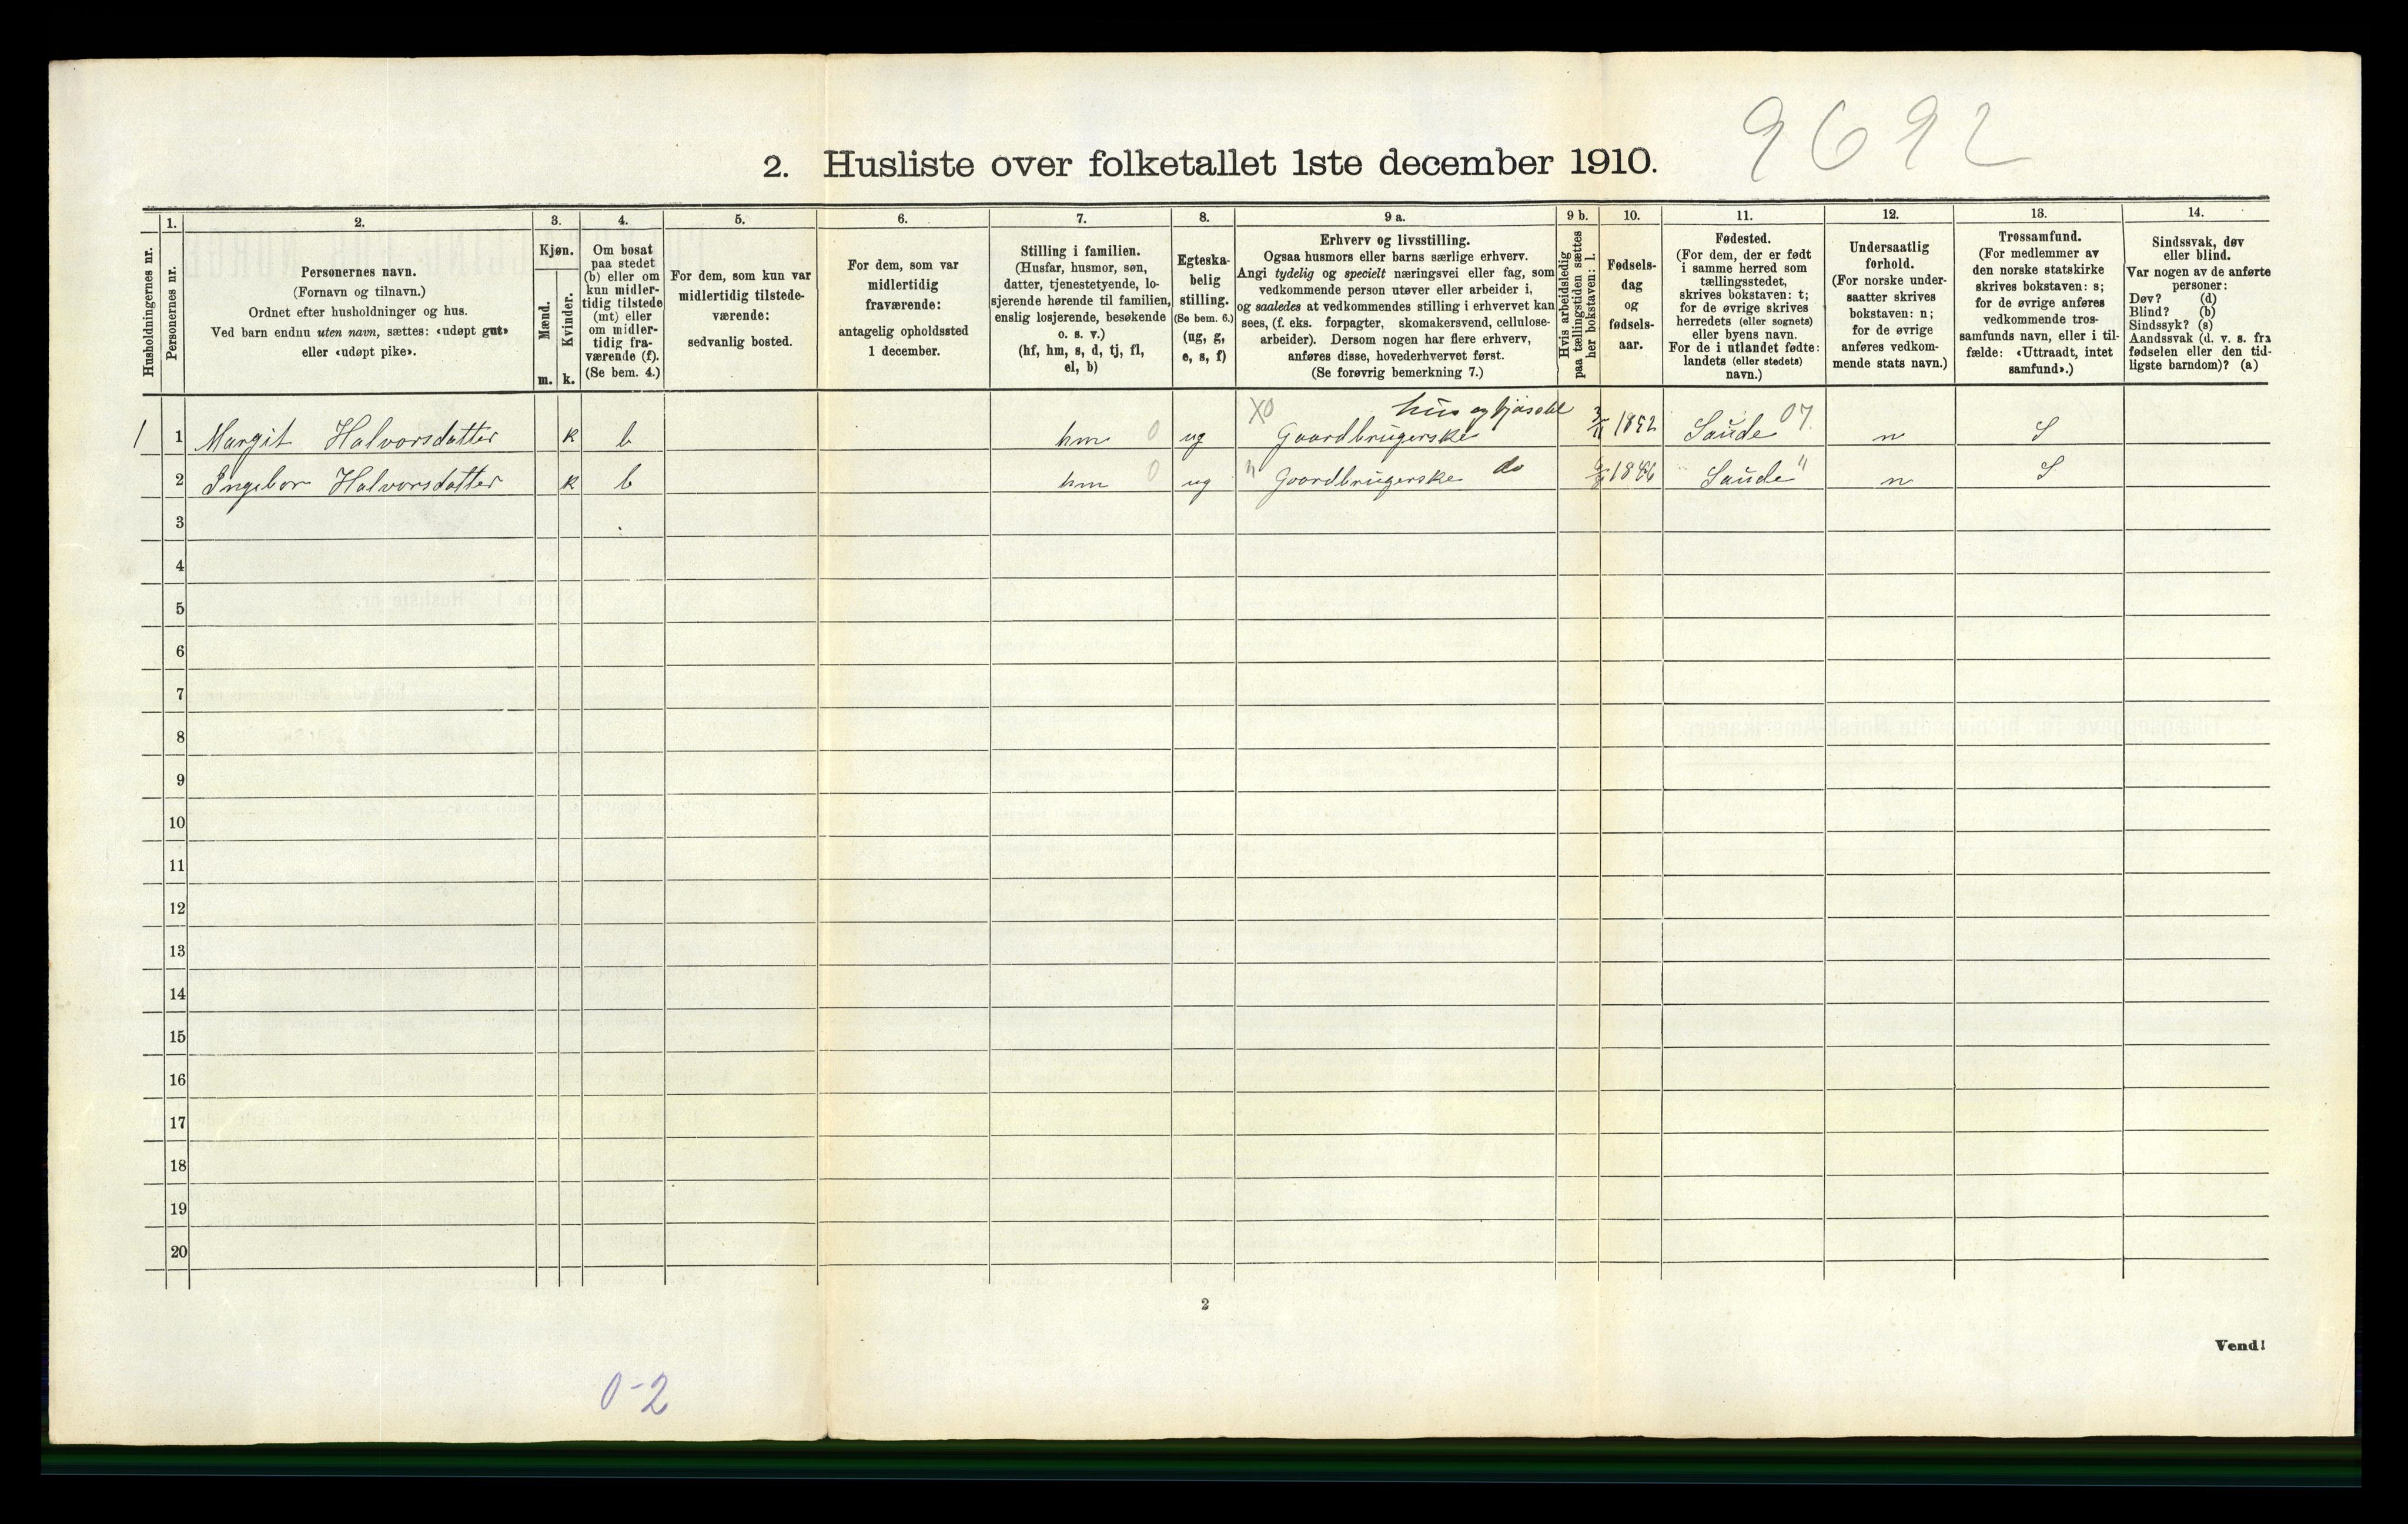 9692
2. Husliste over folketallet 1ste december 1910.
Husholdningernes nr.
1.
Personernes nr.
2.
Personernes navn.
(Fornavn og tilnavn.)
Ordnet efter husholdninger og hus.
Ved barn endnu uten navn, sættes: «udøpt gut»
eller «udøpt pike».
3.
Kjøn.
Mænd.
Kvinder.
m. k.
4.
Om bosat
paa stedet
(b) eller om
kun midler-
tidig tilstede
(mt) eller
om midler-
tidig fra-
værende (f).
(Se bem. 4.)
5.
For dem, som kun var
midlertidig tilstede-
værende:
sedvanlig bosted.
6.
For dem, som var
midlertidig
fraværende:
antagelig opholdssted
1 december.
7.
Stilling i familien.
(Husfar, husmor, søn,
datter, tjenestetyende, lo-
sjerende hørende til familien,
enslig losjerende, besøkende
o. s. v.)
(hf, hm, s, d, tj, fl,
el, b)
8.
Egteska-
belig
stilling.
(Se bem. 6.)
(ug, g,
e, s, f)
9 a.
Erhverv og livsstilling.
Ogsaa husmors eller barns særlige erhverv.
Angi tydelig og specielt næringsvei eller fag, som
vedkommende person utøver eller arbeider i,
og saaledes at vedkommendes stilling i erhvervet kan
sees, (f. eks. forpagter, skomakersvend, cellulose-
arbeider). Dersom nogen har flere erhverv,
anføres disse, hovederhvervet først.
(Se forøvrig bemerkning 7.)
9 b.
Hvis arbeidsledig
paa tællingstiden sættes
her bokstaven: l.
10.
Fødsels-
dag
og
fødsels-
aar.
11.
Fødested.
(For dem, der er født
i samme herred som
tællingsstedet,
skrives bokstaven: t;
for de øvrige skrives
herredets (eller sognets)
eller byens navn.
For de i utlandet fødte:
landets (eller stedets)
navn.)
12.
Undersaatlig
forhold.
(For norske under-
saatter skrives
bokstaven: n;
for de øvrige
anføres vedkom-
mende stats navn.)
13.
Trossamfund.
(For medlemmer av
den norske statskirke
skrives bokstaven: s;
for de øvrige anføres
vedkommende tros-
samfunds navn, eller i til-
fælde: «Uttraadt, intet
samfund».)
14.
Sindssvak, døv
eller blind.
Var nogen av de anførte
personer:
Døv? (d)
Blind? (b)
Sindssyk? (s)
Aandssvak (d. v. s. fra
fødselen eller den tid-
ligste barndom)? (a)
X0 hus og
1 1 Margit Halvorsdatter k b hm 0 ug Gaardbrugerske 1852 Saude 07. n S
2 Ingebor Halvorsdatter k b hm 0 ug " Gaardbrugerske do 1846 Saude " n S
3
4
5
6
7
8
9
10
11
12
13
14
15
16
17
18
19
20
2
Vend!
0-2